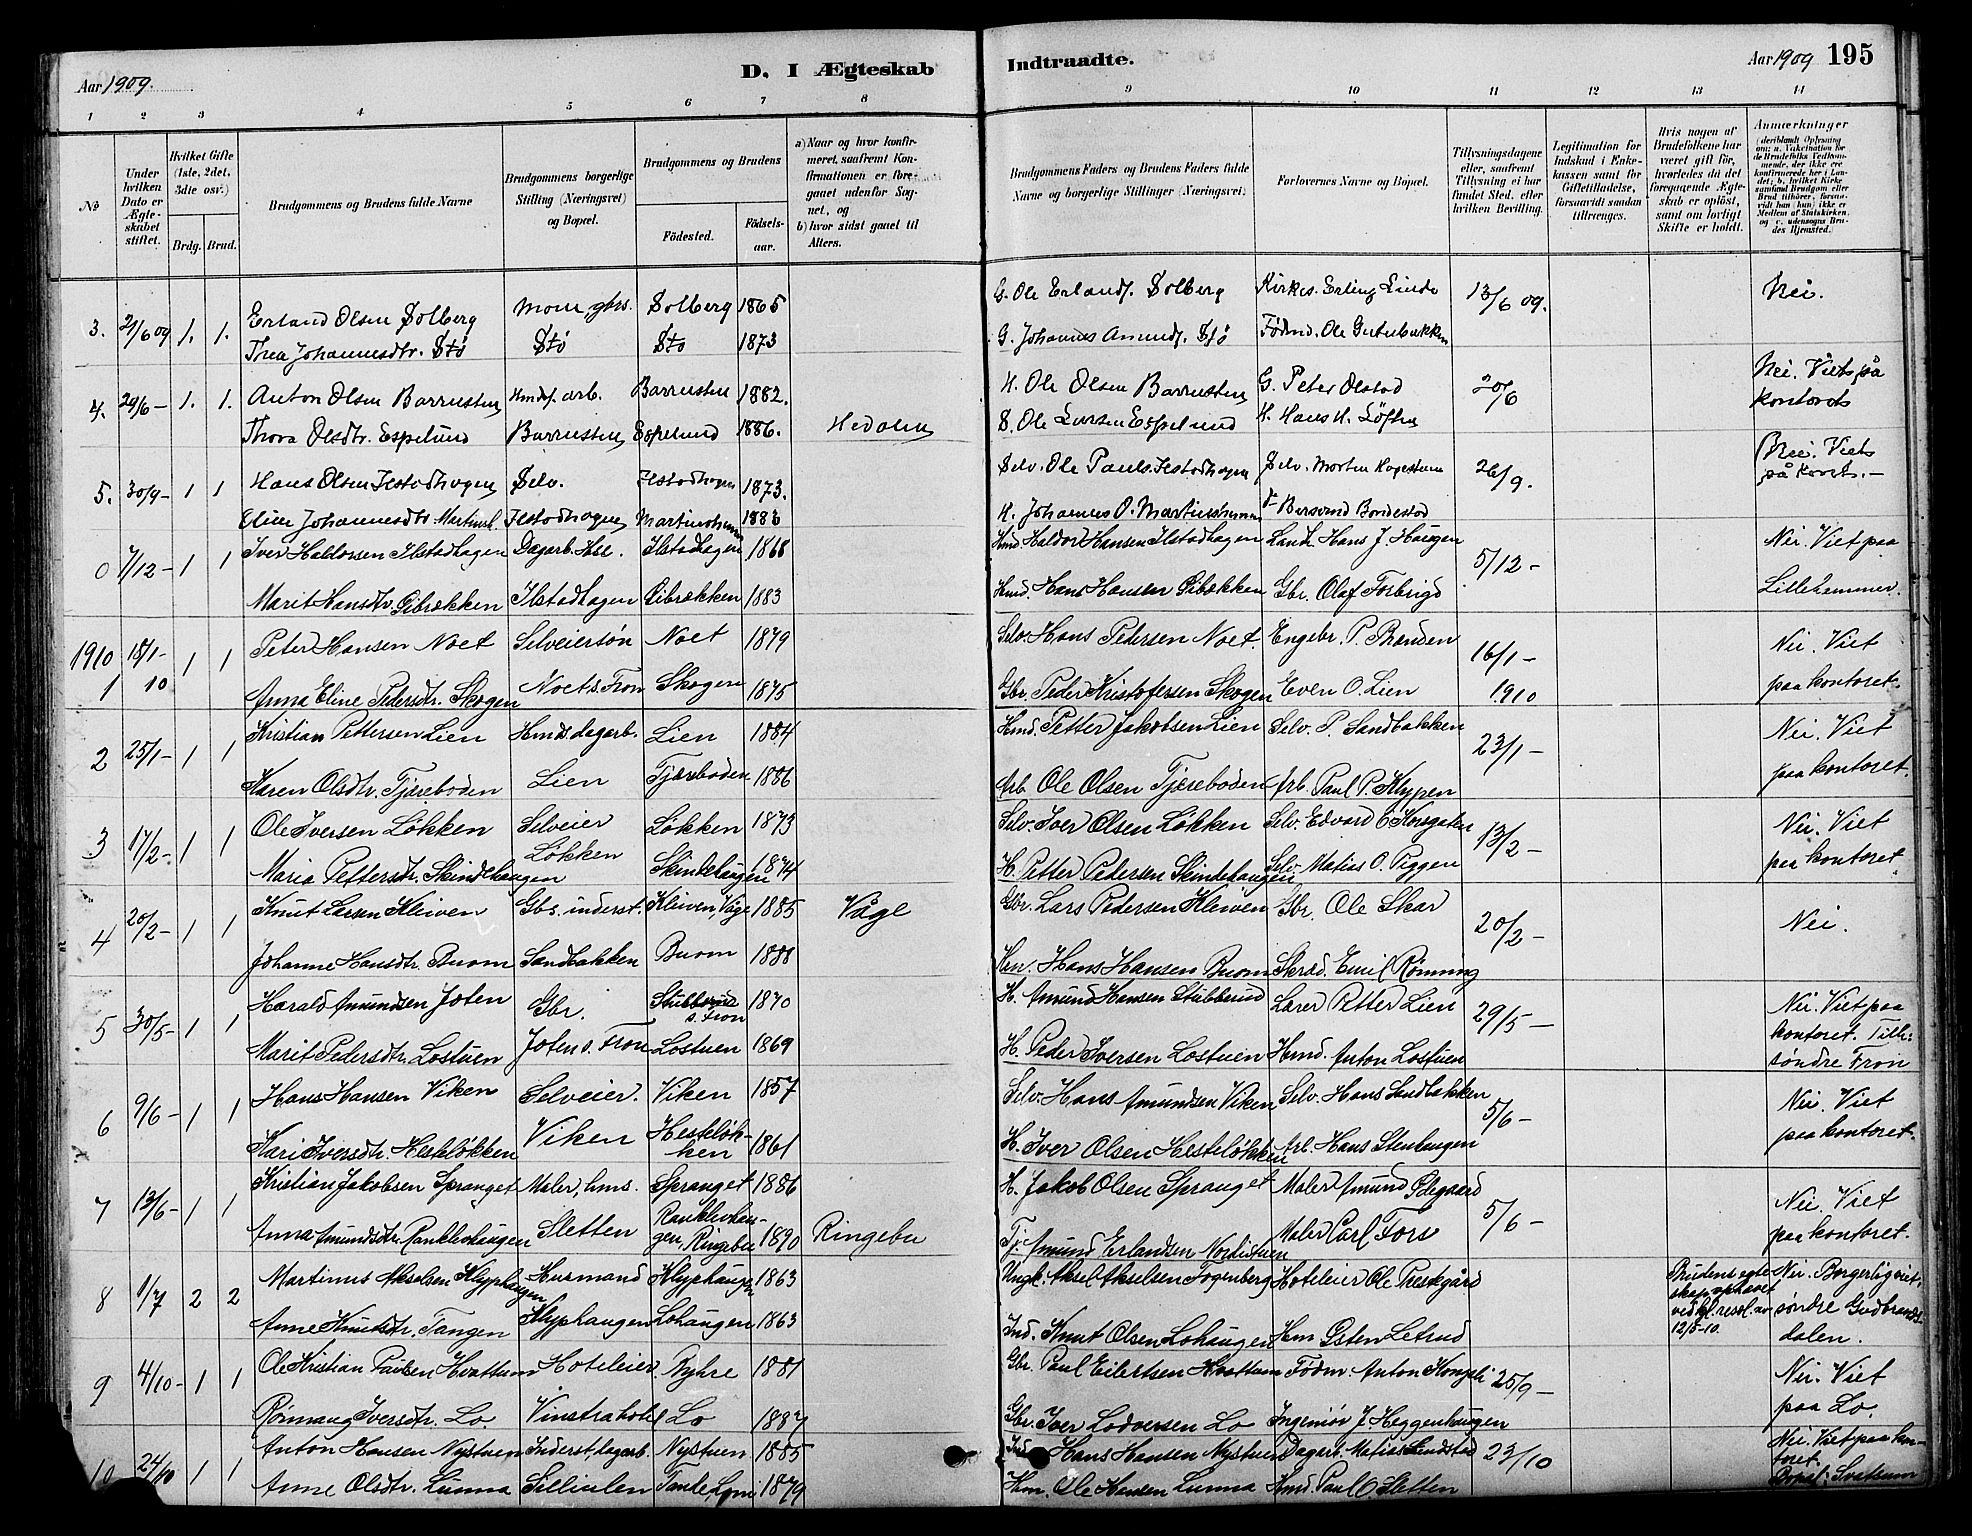 Aar 1909.
D. I Ægteskab
Indtraadte.
Aar 1909 195
1 2 3 4 5 6 7 8 9 10 11 12 13 14
No
Under hvilken Dato er Ægteskabet stiftet.
Hvilket Gifte (1ste, 2det, 3die osv.)
Brdg. Brud.
Brudgommens og Brudens fulde Navne
Brudgommens borgerlige Stilling (Næringsvei) og Bopæl.
Brudgommens og Brudens
Födested. Födselsaar.
a) Naar og hvor konfirmeret, saafremt Konfirmationen er foregaaet udenfor Sognet, og
b) hvor sidst gaaet til Alters.
Brudgommens Faders og Brudens Faders fulde Navne og borgerlige Stillinger (Næringsvei.)
Forlovernes Navne og Bopæl.
Tillysningsdagene eller, saafremt Tillysning ei har fundet Sted, efter hvilken Bevilling.
Legitimation for Indskud i Enkekassen samt for Giftetilladelse, forsaavidt saadan tiltrænges.
Hvis nogen af Brudefolkene har været gift för, hvorledes da det foregaaende Ægteskab er oplöst, samt om lovligt Skifte er holdt.
Anmærkninger
3. 21/6 09 1. 1. Erland Olsen Solberg Solberg 1865 G. Ole Erlands. Solberg Kirkes. Erling Linde 13/6 09. Nei.
Thea Johannesdtr. Stø Stø Stø 1873 G. Johannes Amunds. Stø Fødmd. Ole
4. 29/6 - 1. 1. Anton Olsen Barrusten Hmdsf. arb. Barrusten 1882. H. Ole Olsen Barrusten G. Peter Olstad 20/6 Nei. Viets på
Thora Olsdtr. Espelund Barrusten Espelund 1886. Hedalen S. Ole Larsen Espelund H. Hans H. Løften kontoret
5. 30/9 - 1 1 Hans Olsen Ilstadhagen Selv. Ilstadhagen 1873. Selv. Ole Pauls. Ilstadhagen Selv. Morten Hagestuen 26/9. Nei. Viets
Johannesdtr. Ilstadhagen 1883 H. Johannes O. Bersvend Bondestad på kont. -
0 7/12 - 1 1 Iver Haldossen Ilstadhagen Dagarb. Hse. Ilstadhagen 1868 Hmd. Haldor Hansen Ilstadhagen Landh. Hans J. Haugen 5/12 - Nei. Viet paa
Marit Hansdtr. Øibrækken Ilstadhagen Øibrækken 1883 Hmd. Hans Hansen Øibækken Gbr. Olaf Forbrigd Lillehammer.
1910 1 18/1 - 10 1 1 Peter Hansen Noet Selveiersøn Noet 1879 Selv. Hans Pedersen Noet. Engebr. P. Brenden 16/1 - Nei. Viet
Anna Eline Pedersdtr. Skogen Noet s. Fron Skogen 1875 Gbr. Peder Kristofersen Skogen Even O. Lien 1910 paa kontoret.
2 25/1 - 1 1 Kristian Pettersen Lien Hmds. dagarb. Lien 1884 Hmd. Petter Jakobsen Lien Selv. P. Sandbakken 23/1 - Nei. Viet
Karen Olsdtr. Tjæreboden Lien Tjæreboden 1886 Arb. Ole Olsen Tjæreboden Arb. Paul P. Klypen paa kontoret.
3 17/2 - 1 1 Ole Iversen Løkken Selveier Løkken 1873 Selv. Iver Olsen Løkken Selv. Edvard C. Korsgaten 13/2 - Nei. Viet
Maria Pettersdtr. Skindehaugen Løkken Skindehaugen 1874 H. Petter Pedersen Skindehaugen Selv. Matias O. Piggen paa kontoret.
4 20/2 - 1 1 Knut Larsen Kleiven Gbs. inderst. Kleiven, Våge 1885 Våge Gbr. Lars Pedersen Kleiven Gbr. Ole Skar 20/2 - Nei.
Johanne Hansdtr. Buom Sandbakken Buom 1888 Hans Hansen Buom Skræd. Emil Rønning
5 30/5 - 1 1 Harald Amundsen Joten Gbr. Stubberud s. Fron 1870 H. Amund Hansen Stubberud Lærer Petter Lien 29/5 - Nei. Viet paa
Marit Pedersdtr. Lostuen Joten s. Fron Lostuen 1869 H. Peder Iversen Lostuen Hmd. Anton Lostuen kontoret. Tilh: søndre Fron
6 9/6 - 1 1 Hans Hansen Viken Selveier. Viken 1857 Selv. Hans Amundsen Viken Selv. Hans Sandbakken 5/6 - Nei. Viet
Kari Iversdtr. Hesteløkken Viken Hesteløkken 1861 H. Iver Olsen Hesteløkken Arb. Hans Stenhaugen paa kontoret.
7 13/6 - 1 1 Kristian Jakobsen Spranget Maler, hms. Spranget 1886 H. Jakob Olsen Spranget Maler Amund Ødegaard 5/6 - Nei. Viet
Anna Amundsdtr. Ranklevhaugen Sletten Ranklevhaugen, Ringebu 1890 Ringebu Tj. Amund Erlandsen Nordistuen Maler Carl Fors paa kontoret.
8 1/7 2 2 Martinus Akselsen Klyphaugen Husmand Klyphaugen 1863 Ungk. Aksel Akselsen Fogenberg Hoteleier Ole Prestgård Brudens egteskap ophævet ved kgl. resol. av 12/5-10. Nei. Borgerlig viet:
Anne Knutsdtr. Tangen Klyphaugen Lohaugen 1863 Ind. Knut Olsen Lohaugen Hm Gsten Letrud søndre Gudbrandsdalen.
9 4/10 - 1 1 Ole Kristian Paulsen Hvattum Hoteleier Nyhre 1881 Gbr. Paul Eilertsen Hvattum Fødm. Anton Kongsli 25/9 - Nei. Viet
Rønnaug Iversdtr. Lo Vinstra hotel Lo 1887 Gbr. Iver Lodversen Lo Ingeniør J. Heggenhaugen paa Lo.
10 24/10 1 1 Anton Hansen Nystuen Inderst, dagarb. Nystuen 1885 Ind. Hans Hansen Nystuen Dagarb. Matias Lundstad 23/10 Nei. Viet paa kontoret.
Anne Olsdtr. Lunna Silliulen 1879 Hm. Ole Hansen Lunna Hmd. Paul O. Sletten Bopæl: Svatsum